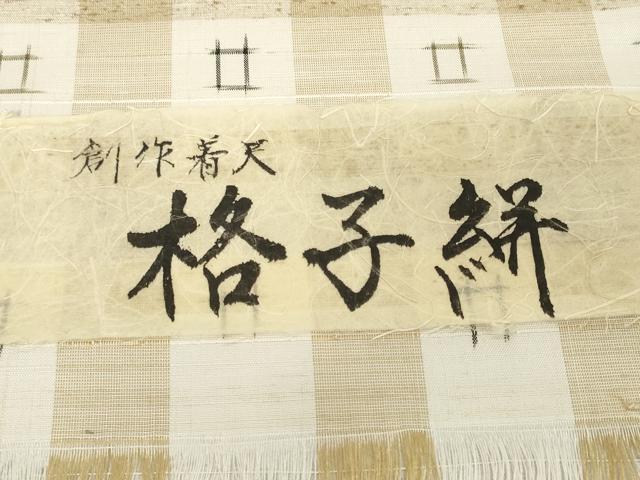 創作着尺
格子絣